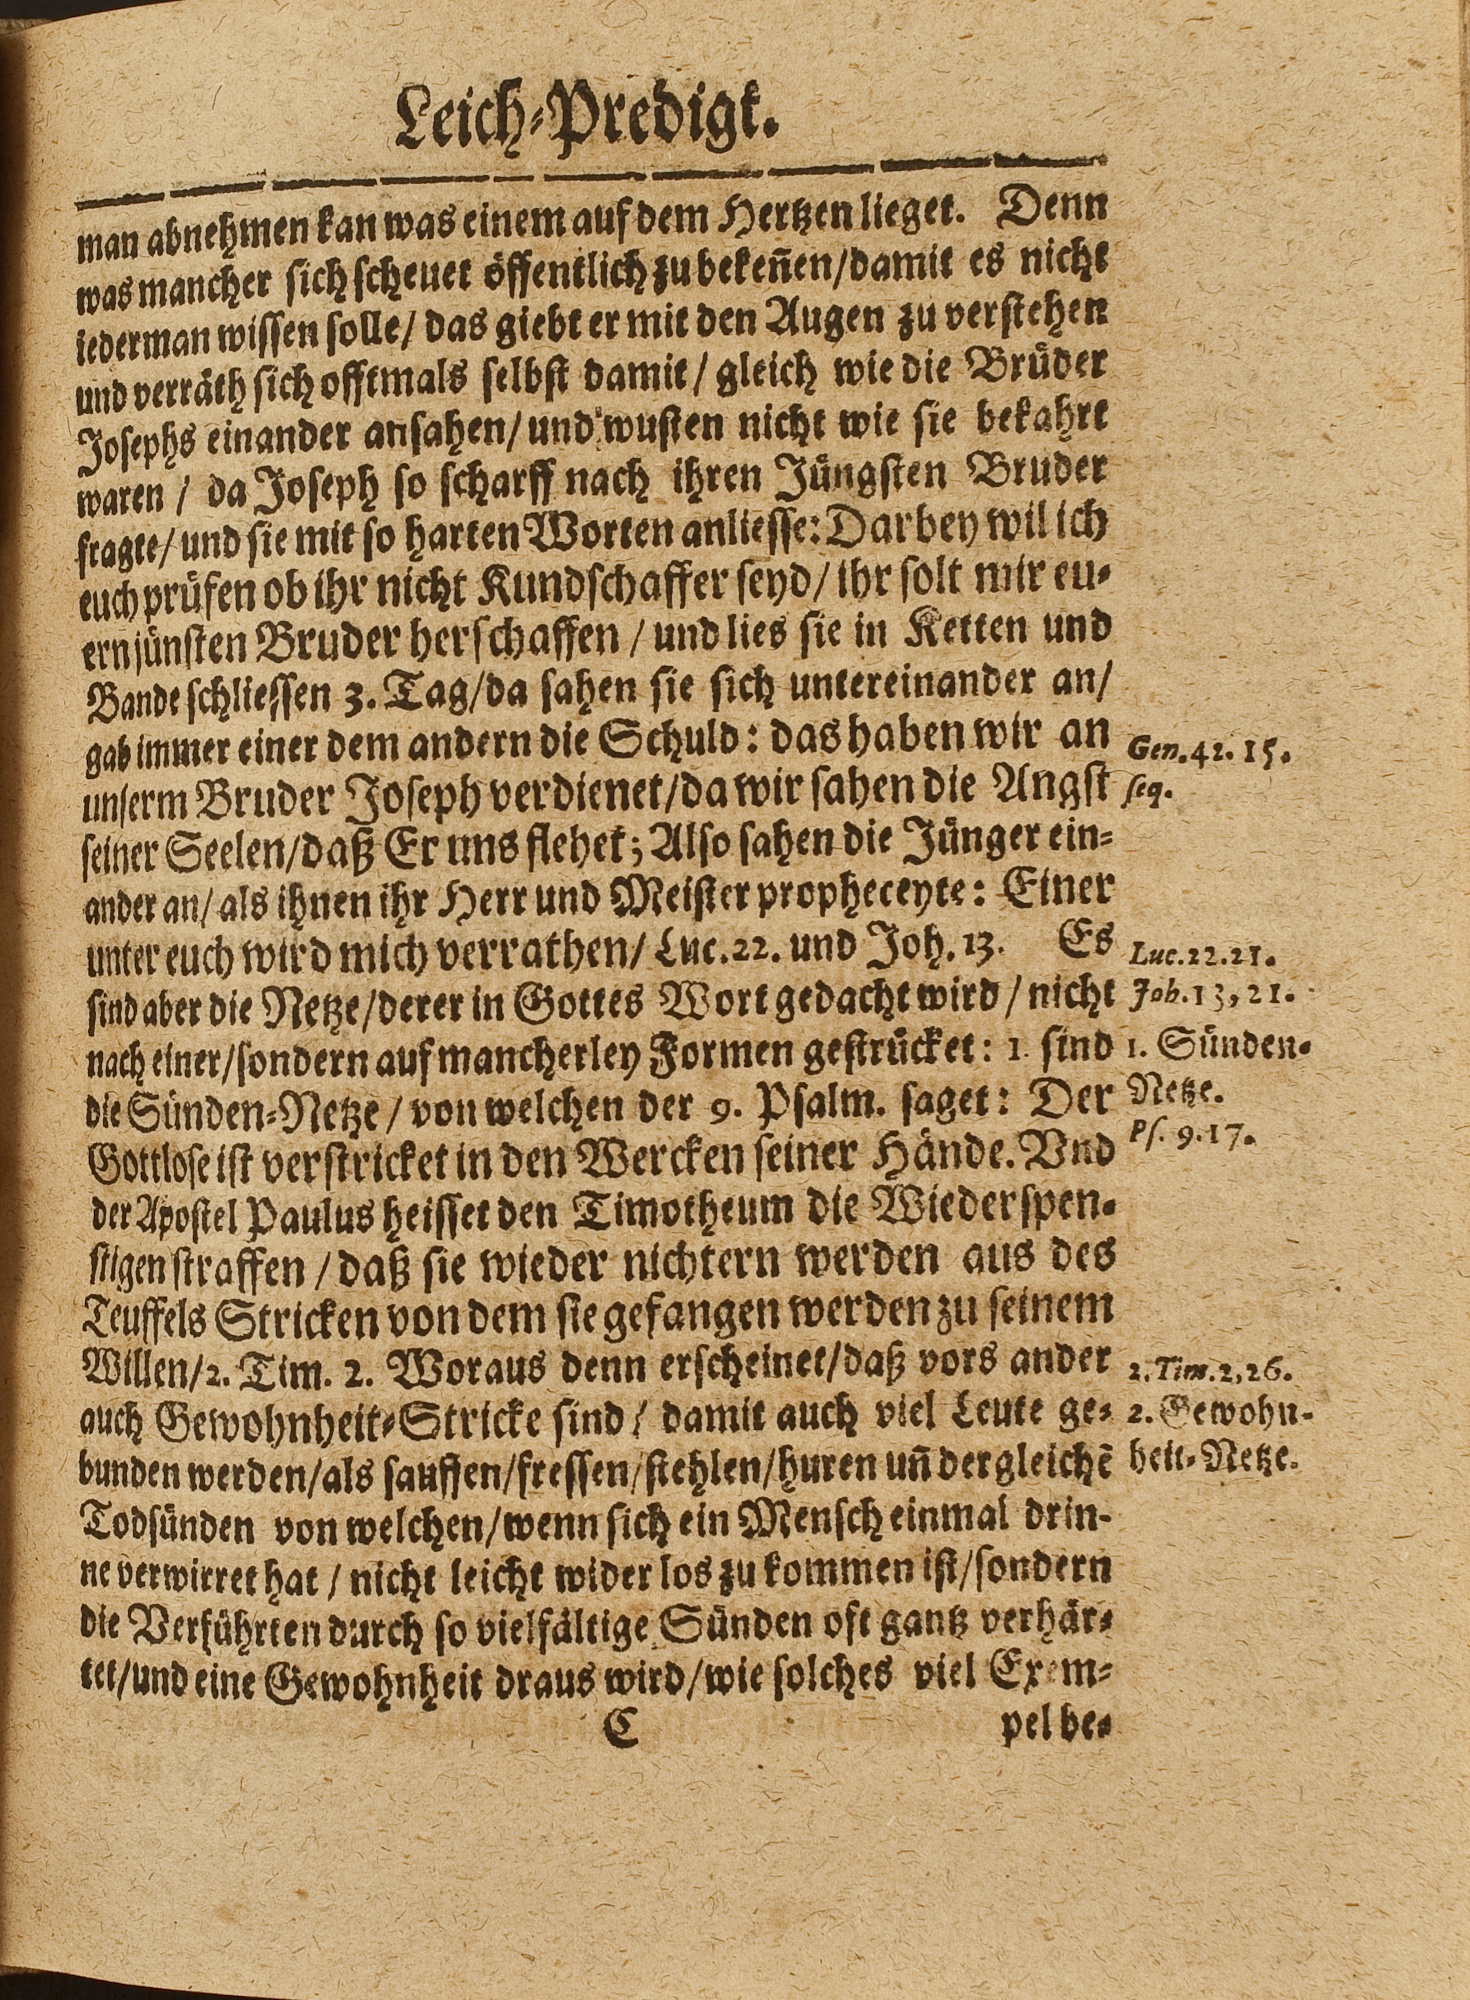 Leich-Predigt.
man abnehmen kan was einem auf dem Hertzen lieget. Denn
was mancher sich scheuet öffentlich zu bekeñen/damit es nicht
iederman wissen solle/ das giebt er mit den Augen zu verstehen
und verräth sich offtmals selbst damit/ gleich wie die Brüder
Josephs einander ansahen/ und wusten nicht wie sie bekahrt
waren / da Joseph so scharff nach ihren Jüngsten Bruder
fragte/ und sie mit so harten Worten anliesse: Darbey wil ich
euch prüfen ob ihr nicht Kundschaffer seyd/ ihr solt mir eu-
ern jünsten Bruder herschaffen / und lies sie in Ketten und
Bande schliessen 3. Tag/da sahen sie sich untereinander an/
gab immer einer dem andern die Schuld: das haben wir an
Gen. 42. 15.
unserm Bruder Joseph verdienet/da wir sahen die Angst
seq.
seiner Seelen/daß Er uns flehet; Also sahen die Jünger ein-
ander an/ als ihnen ihr Herr und Meister propheceyte: Einer
unter euch wird mich verrathen/ Luc. 22. und Joh. 13. Es
Luc. 22. 21.
sind aber die Netze/derer in Gottes Wort gedacht wird / nicht
Joh. 13, 21.
nach einer/sondern auf mancherley Formen gestrücket: 1. sind
1. Sünden-
die Sünden-Netze / von welchen der 9. Psalm. saget: Der
Netze.
Gottlose ist verstricket in den Wercken seiner Hände. Vnd
Ps. 9. 17.
der Apostel Paulus heisset den Timotheum die Wiederspen-
stigen straffen / daß sie wieder nichtern werden aus des
Teuffels Stricken von dem sie gefangen werden zu seinem
Willen/2. Tim. 2. Woraus denn erscheinet/daß vors ander
2. Tim. 2, 26.
auch Gewohnheit-Stricke sind / damit auch viel Leute ge-
2. Gewohn-
bunden werden/als sauffen/fressen/stehlen/huren uñ dergleichẽ
heit-Netze.
Todsünden von welchen/wenn sich ein Mensch einmal drin-
ne verwirret hat / nicht leicht wider los zu kommen ist/sondern
die Verführten durch so vielfältige Sünden oft gantz verhär-
tet/und eine Gewohnheit draus wird/wie solches viel Exem-
C
pel be-